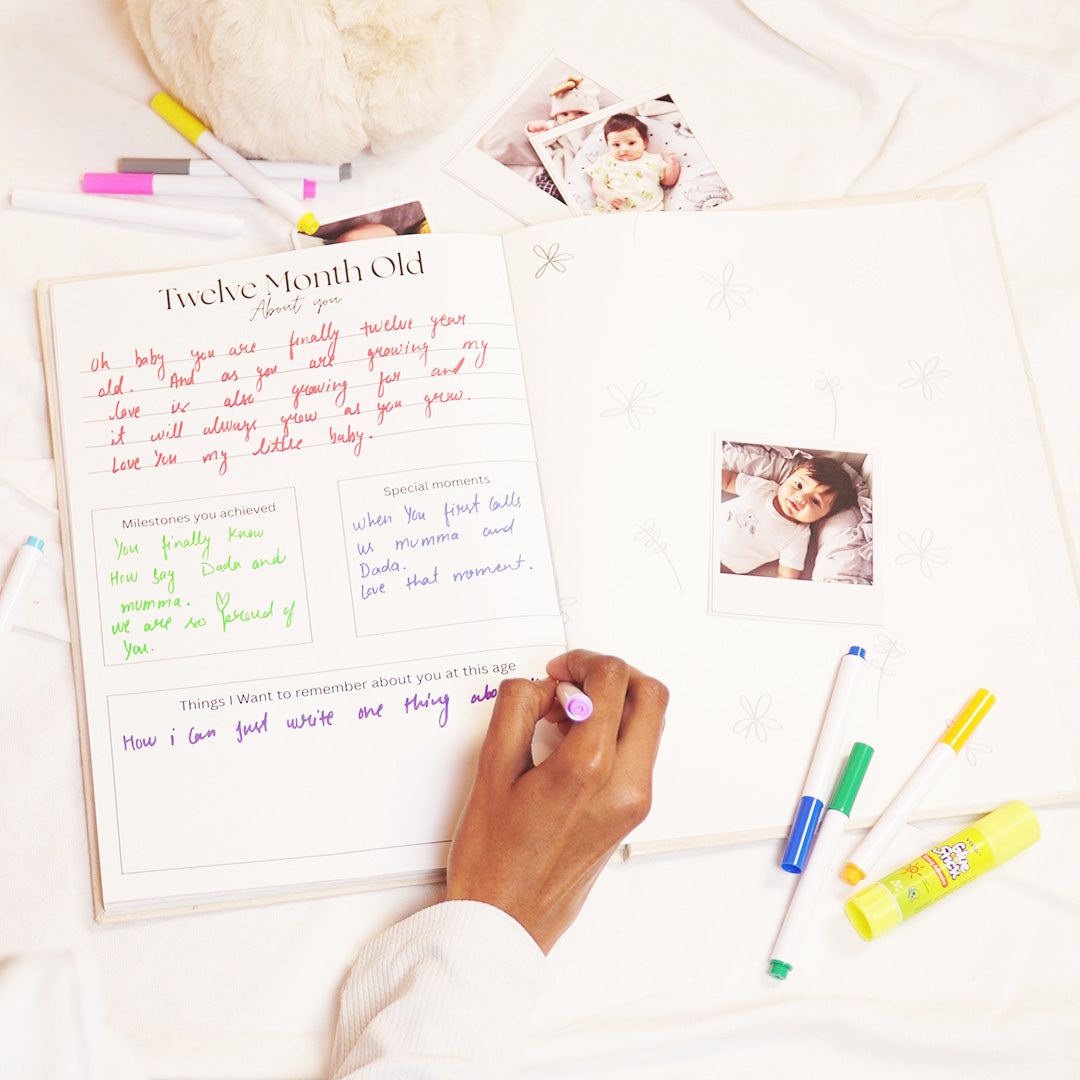 Twelve Month Old
About you
Oh baby you are finally twelve year
old. And as you are growing my
love is also growing for and
it will always grow as you grow.
Love You my little baby.
Milestones you achieved
You finally know
How say Dada and
mumma. ♡
we are so proud of
You.
Special moments
when You first calls
us mumma and
Dada.
Love that moment.
Things I Want to remember about you at this age
How i can just write one thing
Glue
Stick